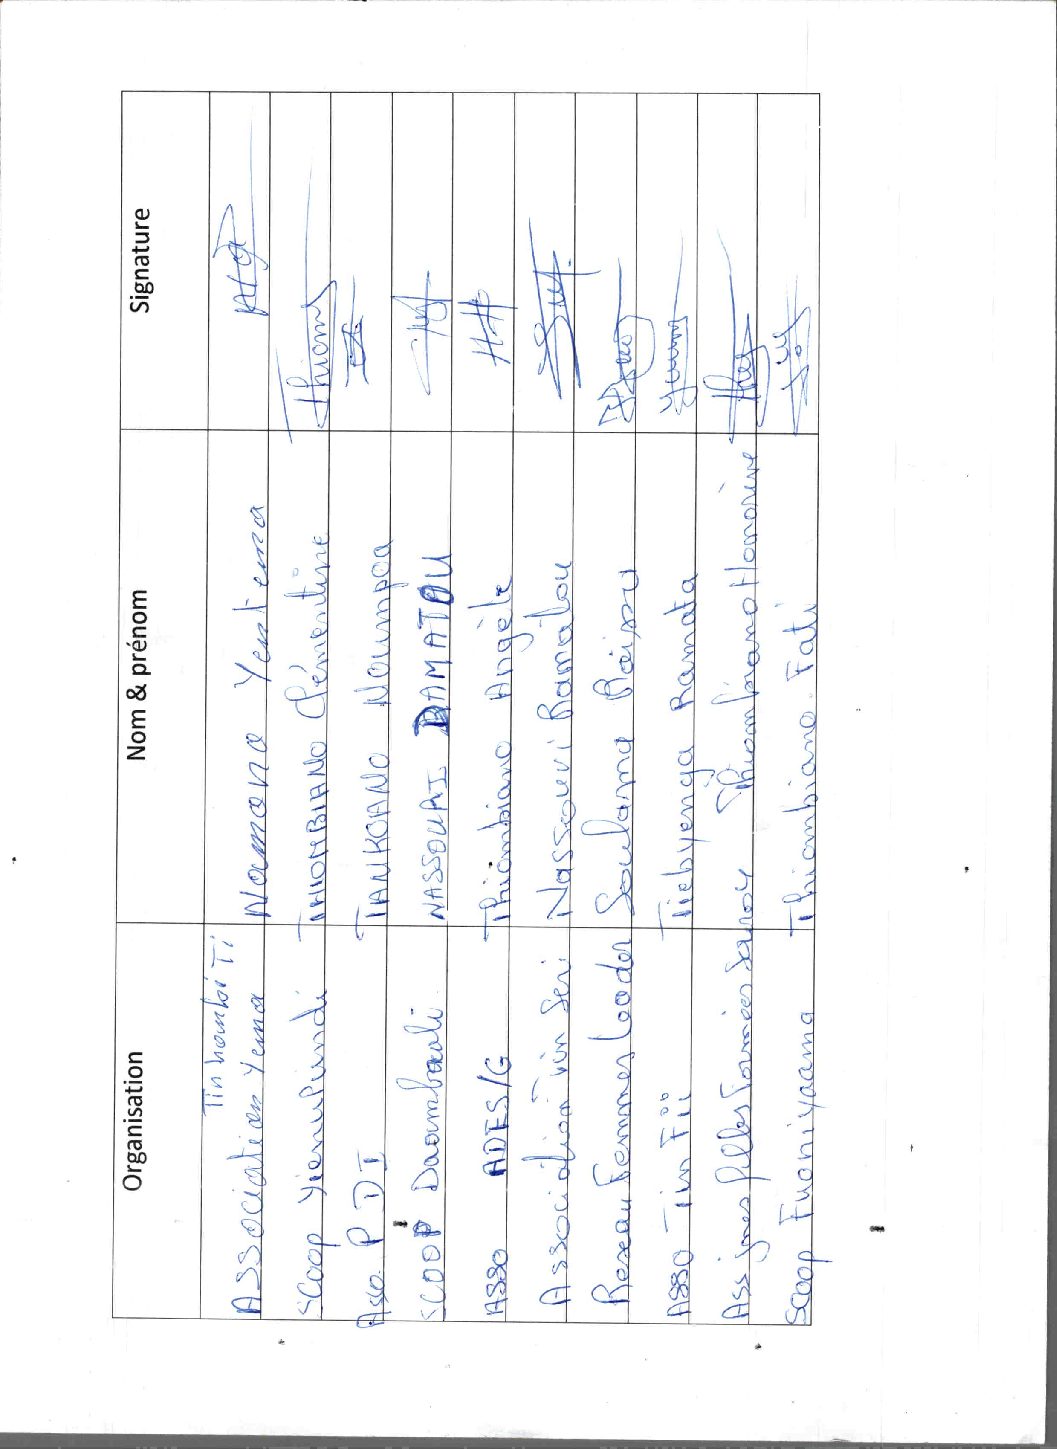 Organisation Nom & prénom Signature
Tin hanbi Ti
Association Yema Namono Yentema
Scoop Yienupundi THIOMBIANO Clémentine Thiom
Asso. P DI TANKOANO Noumpoa
SCOOP Daambadi NASSOURI RAMATOU
ASSO ADES/G Thiombiano Angèle
Association Tin Seri Nassouri Ramatou
Reseau Femmes Leader Soulama Raissa
ASSO Tin Fii Tiebyenga Ramata
Ass jnes filles Formées Thiombiano Honorine
Scoop Fuoniyaama Thiombiano Fati